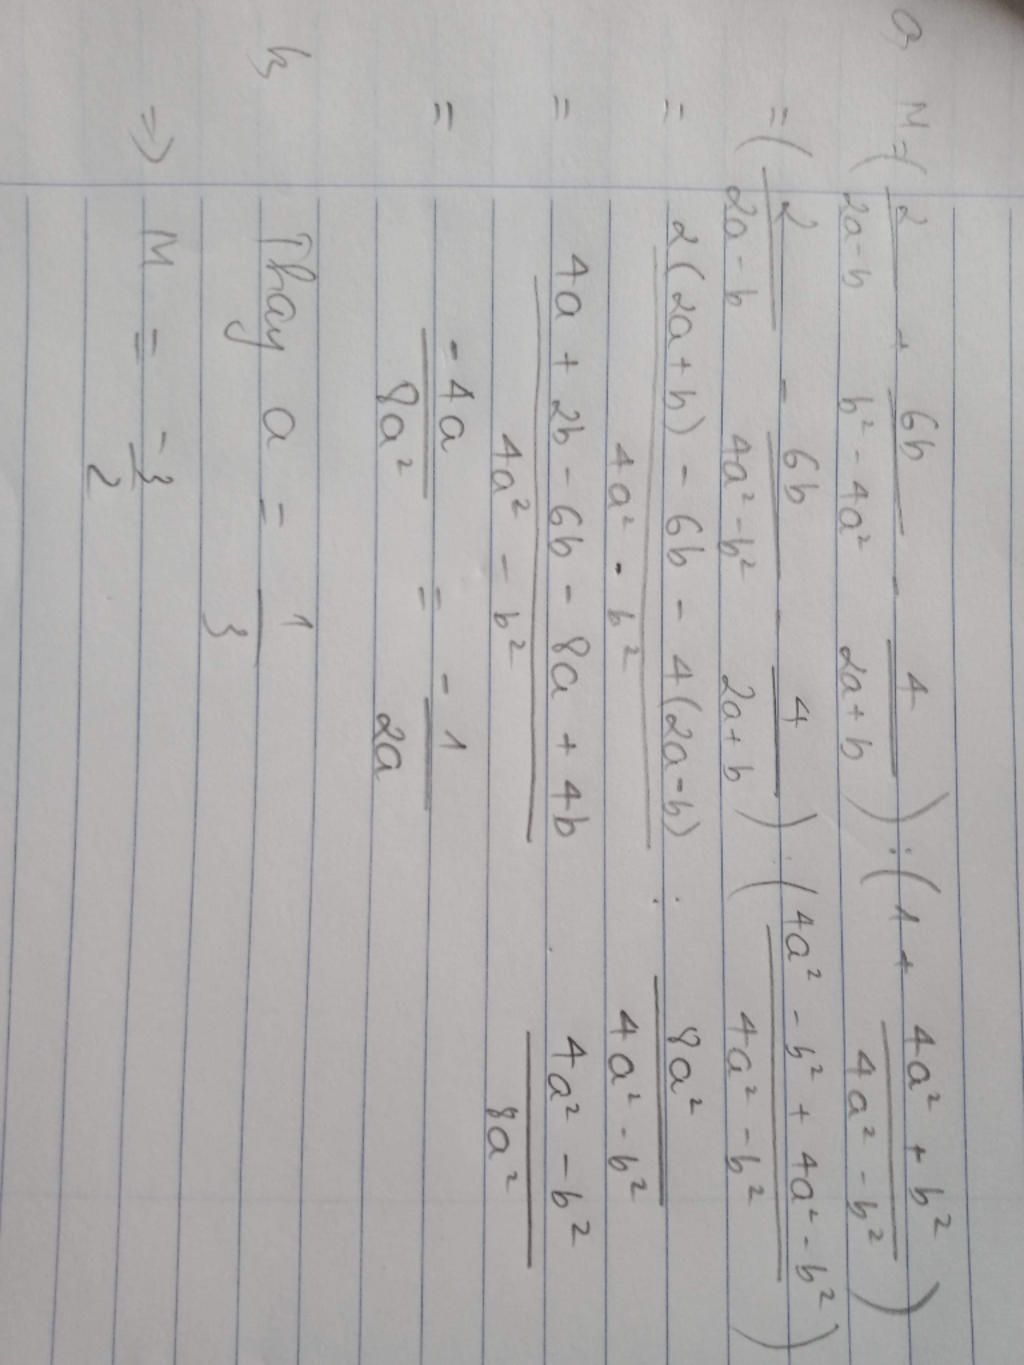 a, M = ( 2/(2a-b) + 6b/(b² - 4a²) - 4/(2a+b) ) : ( 1 + (4a² + b²)/(4a² - b²) )
= ( 2/(2a-b) - 6b/(4a² - b²) - 4/(2a+b) ) : ( (4a² - b² + 4a² - b²)/(4a² - b²) )
= (2(2a+b) - 6b - 4(2a-b))/(4a² - b²) : 8a²/(4a² - b²)
= (4a + 2b - 6b - 8a + 4b)/(4a² - b²) . (4a² - b²)/8a²
= -4a/8a² = -1/2a
b, Thay a = 1/3
=> M = -3/2